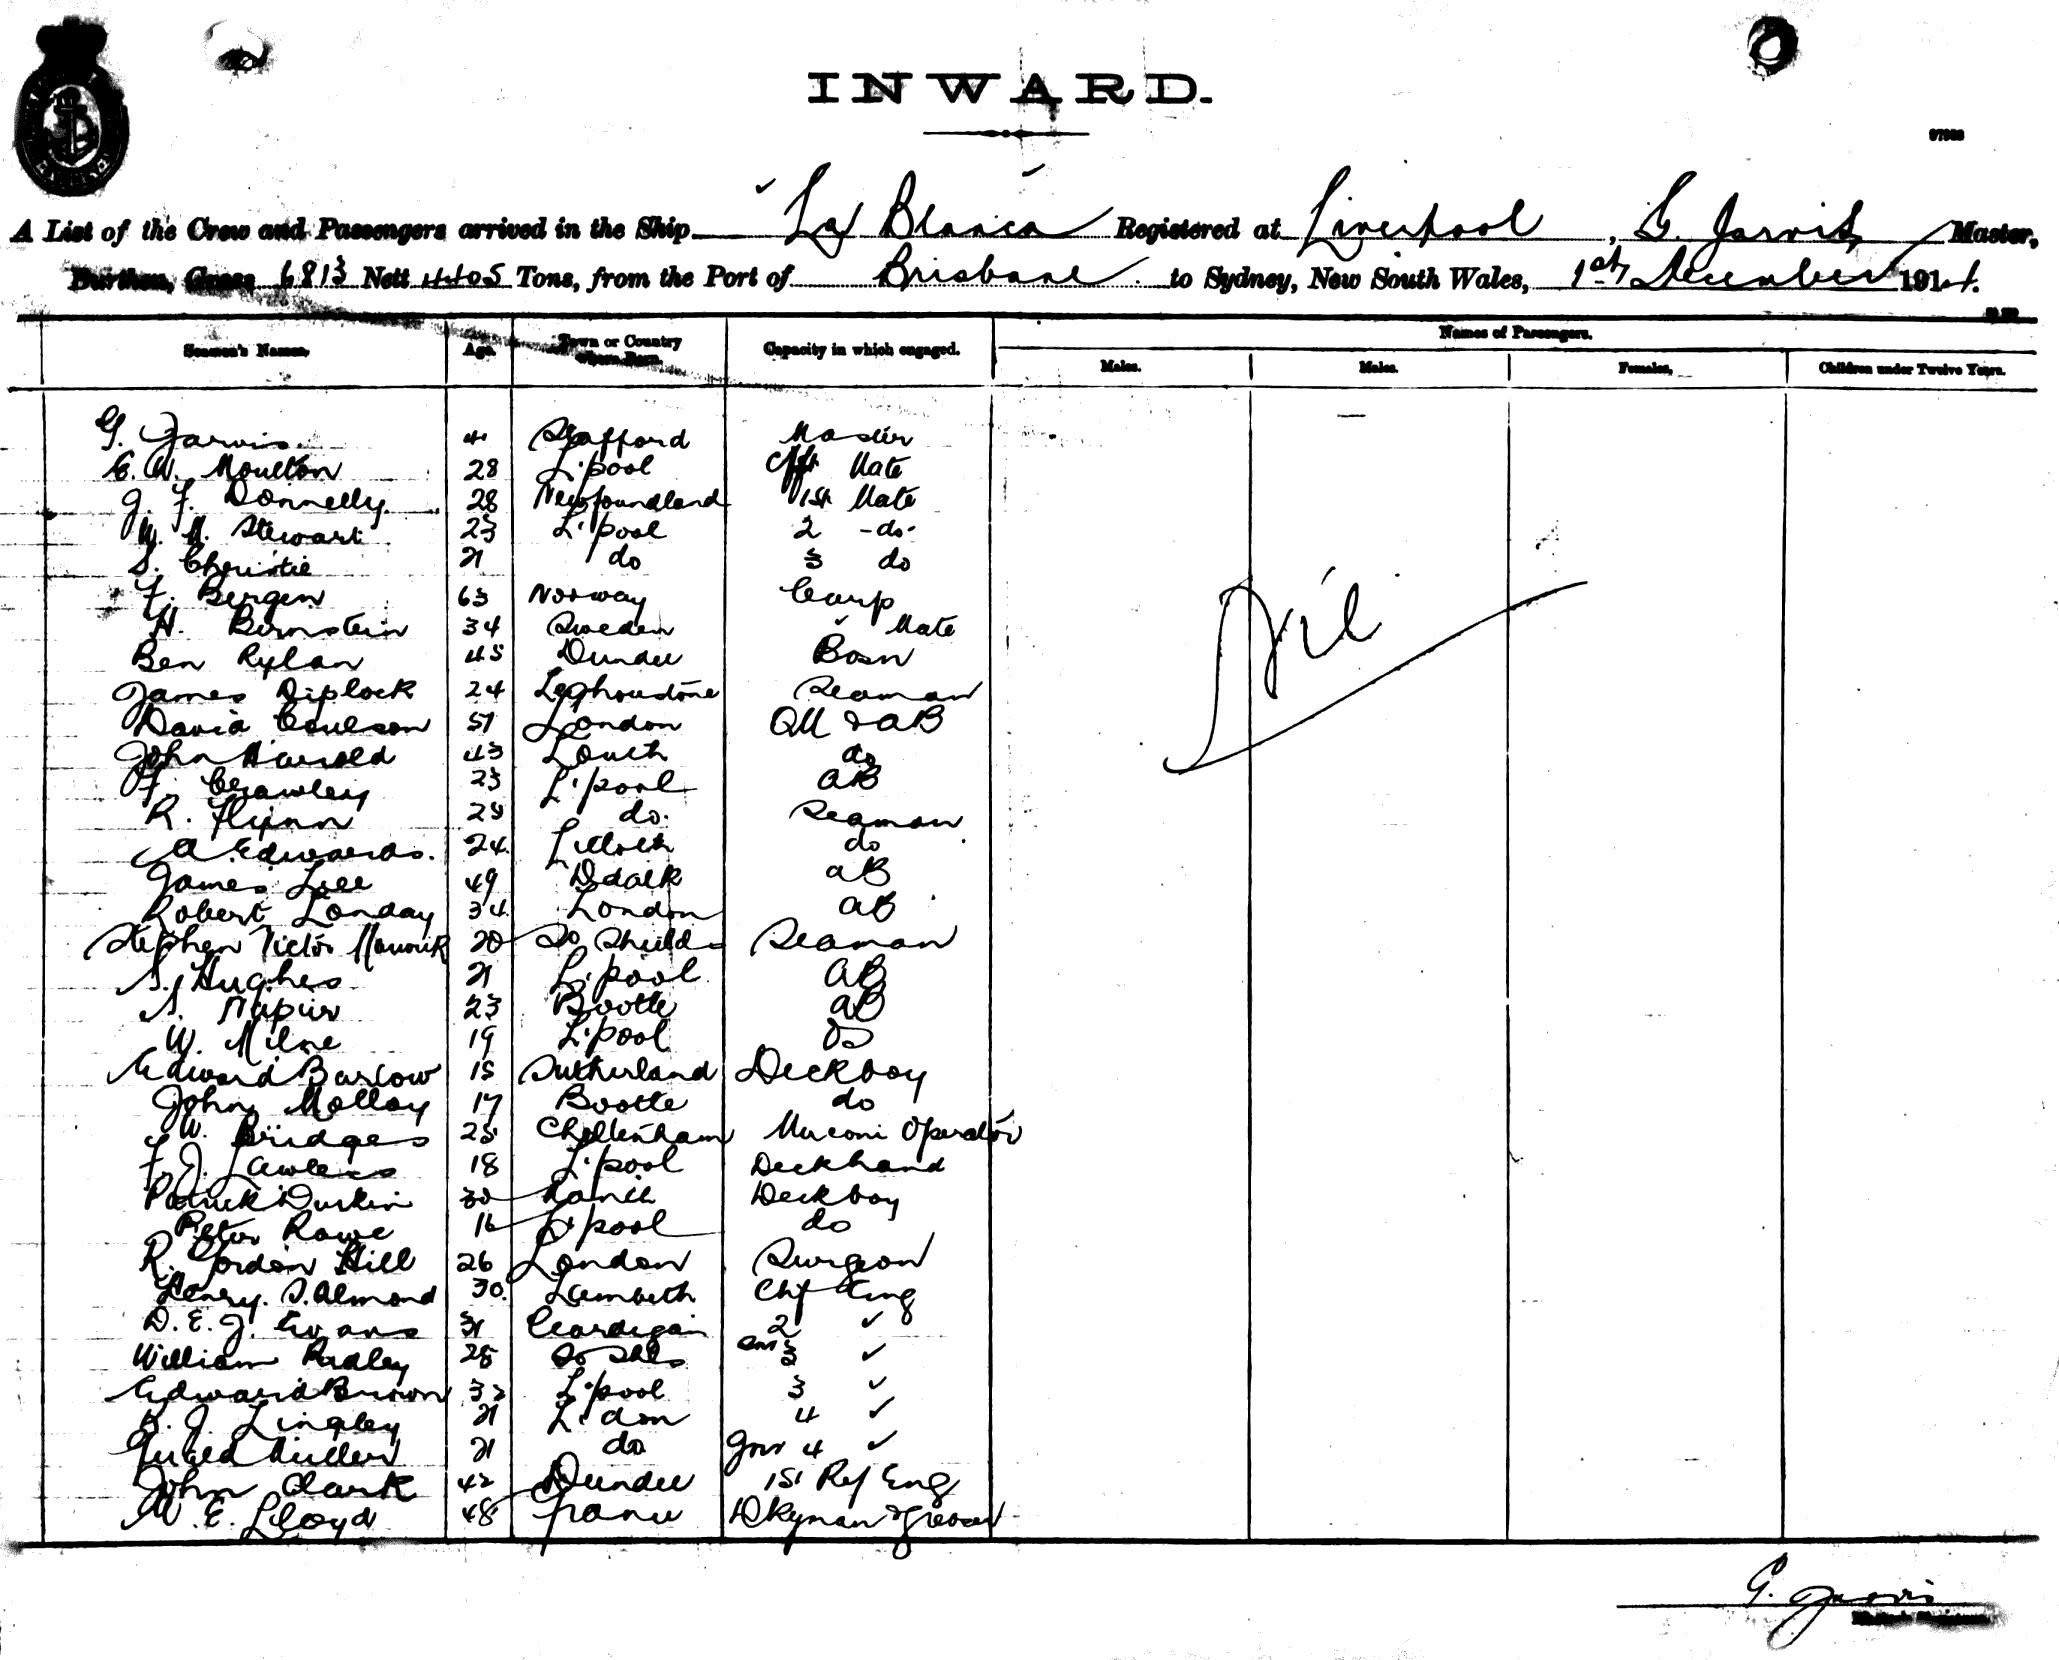 INWARD.
97963
A List of the Crew and Passengers arrived in the Ship La Blanca Registered at Liverpool, G. Jarvis Master,
Burthen, Gross 6813 Nett 4405 Tons, from the Port of Brisbane to Sydney, New South Wales, 1st December 1914.
Seamen's Names. Age. Town or Country where Born. Capacity in which engaged. Names of Passengers.
Males. Males. Females, Children under Twelve Years.
G. Jarvis 41 Stafford Master
E. W. Moulton 28 L'pool Mate
J. F. Donnelly 28 Newfoundland 1st Mate
W. M. Stewart 23 L'pool 2 -do-
S. Christie 21 do 3 do
F. Bergen 63 Norway Carp
H. Bernstein 34 Sweden " Mate
Ben Rylan 45 Dundee Bosn
James Diplock 24 Seaman
David Coulson 51 London QM & AB
John Harrold 43 Louth do
F. Crawley 23 L'pool AB
R. Flynn 28 do. Seaman
A Edwards. 24 do
James Lee 49 Ddalk AB
Robert Londay 34 London AB
Stephen Victor 20 So Shields Seaman
S. Hughes 21 L'pool AB
S. Napier 23 Bootle AB
W. Milne 19 L'pool OS
Edward Barlow 15 Sutherland Deckboy
John Molloy 17 Bootle do
W. Bridges 25 Cheltenham Marconi Operator
F. J. Lawless 18 L'pool Deckhand
Patrick Durkin 30 Deckboy
Peter Rowe 16 L'pool do
R. Gordon Hill 26 London Surgeon
Henry. S. Almond 30. Lambeth Chf Eng
D. E. J. Evans 31 Cardigan 2 "
William Radley 28 So Shls 3 "
Edward Brown 32 L'pool 3 "
B. J. Lingley 21 L'don 4 "
Gerald Muller 21 do Jnr 4 "
John Clark 42 Dundee 1st Ref Eng
W. E. Lloyd 48 France Dkyman & Greaser
Nil
G. Jarvis